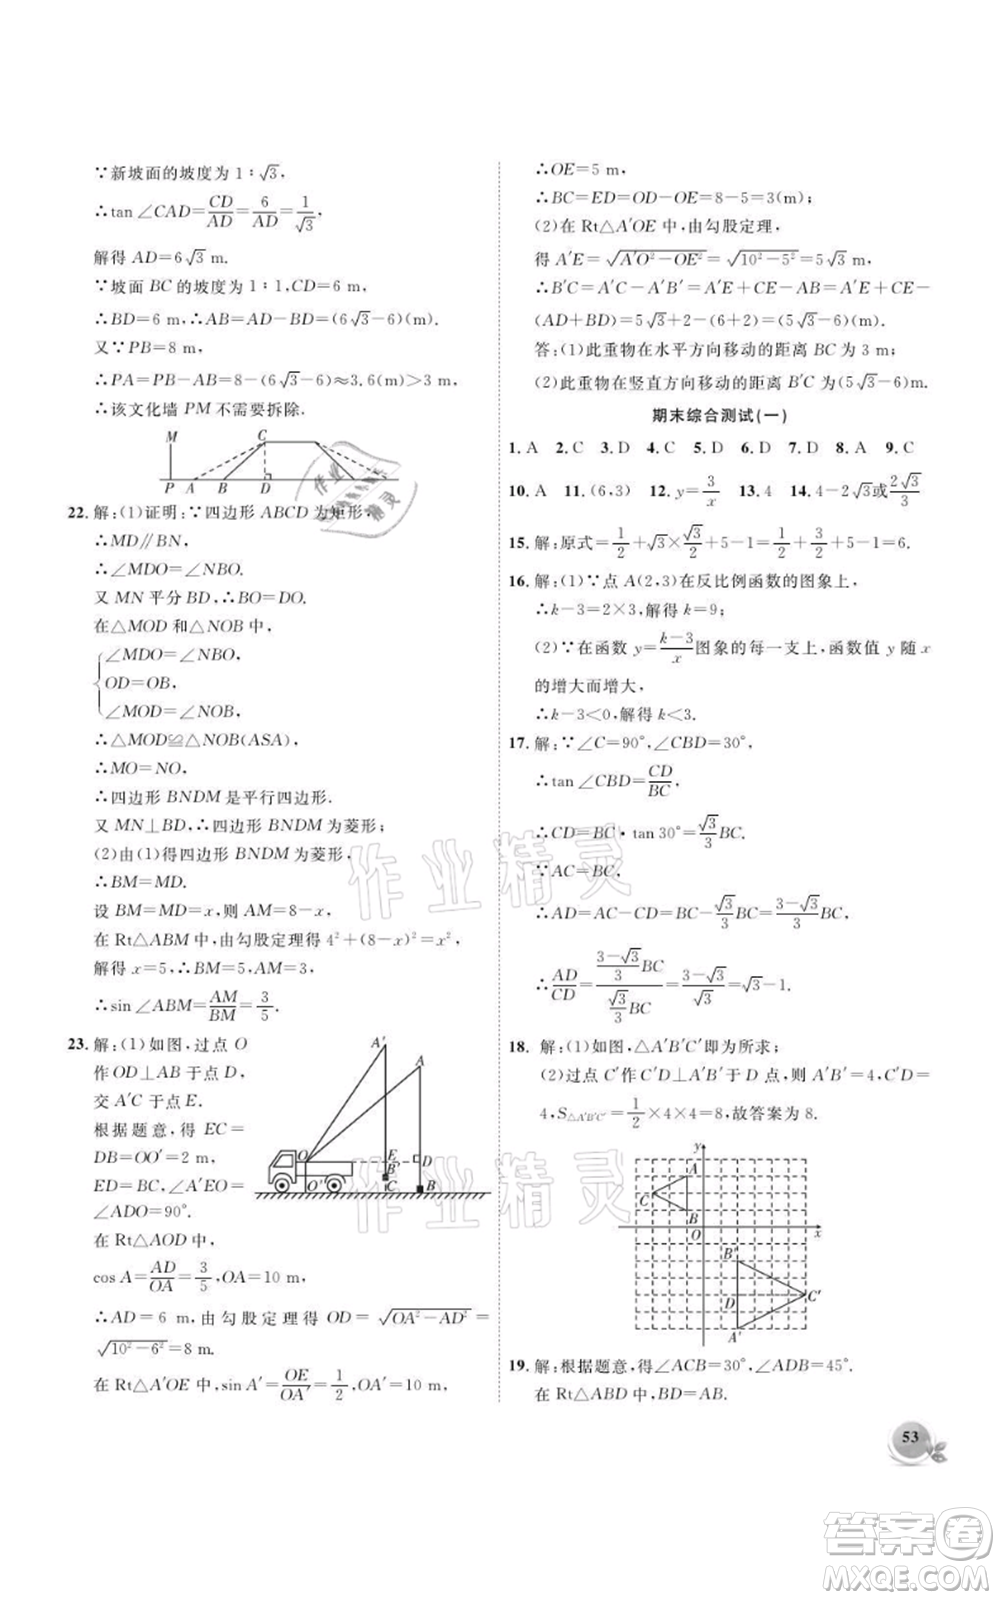 ∵新坡面的坡度为 1∶√3,
∴tan∠CAD=CD/AD=6/AD=1/√3,
解得 AD=6√3 m.
∵坡面 BC 的坡度为 1∶1,CD=6 m,
∴BD=6 m,∴AB=AD-BD=(6√3-6)(m).
又∵PB=8 m,
∴PA=PB-AB=8-(6√3-6)≈3.6(m)>3 m,
∴该文化墙 PM 不需要拆除.
M C
P A B D
22. 解:(1)证明:∵四边形 ABCD 为矩形,
∴MD∥BN,
∴∠MDO=∠NBO.
又 MN 平分 BD,∴BO=DO.
在△MOD 和△NOB 中,
∠MDO=∠NBO,
OD=OB,
∠MOD=∠NOB,
∴△MOD≌△NOB(ASA),
∴MO=NO,
∴四边形 BNDM 是平行四边形.
又 MN⊥BD,∴四边形 BNDM 为菱形;
(2)由(1)得四边形 BNDM 为菱形,
∴BM=MD.
设 BM=MD=x,则 AM=8-x,
在 Rt△ABM 中,由勾股定理得 4²+(8-x)²=x²,
解得 x=5,∴BM=5,AM=3,
∴sin∠ABM=AM/BM=3/5.
23. 解:(1)如图,过点 O
作 OD⊥AB 于点 D,
交 A′C 于点 E.
根据题意,得 EC=
DB=OO′=2 m,
ED=BC,∠A′EO=
∠ADO=90°.
在 Rt△AOD 中,
cos A=AD/OA=3/5,OA=10 m,
A′
A
O E D
B′
O″ C B
∴AD=6 m,由勾股定理得 OD=√(OA²-AD²)=
√(10²-6²)=8 m.
在 Rt△A′OE 中,sin A′=OE/OA′=1/2,OA′=10 m,
∴OE=5 m,
∴BC=ED=OD-OE=8-5=3(m);
(2)在 Rt△A′OE 中,由勾股定理,
得 A′E=√(A′O²-OE²)=√(10²-5²)=5√3 m,
∴B′C=A′C-A′B′=A′E+CE-AB=A′E+CE-
(AD+BD)=5√3+2-(6+2)=(5√3-6)(m).
答:(1)此重物在水平方向移动的距离 BC 为 3 m;
(2)此重物在竖直方向移动的距离 B′C 为(5√3-6)m.
期末综合测试(一)
1. A 2. C 3. D 4. C 5. D 6. D 7. D 8. A 9. C
10. A 11. (6,3) 12. y=3/x 13. 4 14. 4-2√3或2√3/3
15. 解:原式=1/2+√3×√3/2+5=1/2+3/2+5=6.
16. 解:(1)∵点 A(2,3)在反比例函数的图象上,
∴k-3=2×3,解得 k=9;
(2)∵在函数 y=k-3/x图象的每一支上,函数值 y 随 x
的增大而增大,
∴k-3<0,解得 k<3.
17. 解:∵∠C=90°,∠CBD=30°,
∴tan∠CBD=CD/BC,
∴CD=BC·tan 30°=√3/3BC.
∵AC=BC,
∴AD=AC-CD=BC-√3/3BC=3-√3/3BC,
∴AD/CD=(3-√3/3BC)/(√3/3BC)=3-√3/√3=√3-1.
18. 解:(1)如图,△A′B′C′即为所求;
(2)过点 C′作 C′D⊥A′B′于 D 点,则 A′B′=4,C′D=
4,S△A′B′C′=1/2×4×4=8,故答案为 8.
y
A
C
B
O x
B′
D C′
A′
19. 解:根据题意,得∠ACB=30°,∠ADB=45°.
在 Rt△ABD 中,BD=AB.
53
作业精灵
作业精灵
作业精灵
答案卷
MXQE.COM